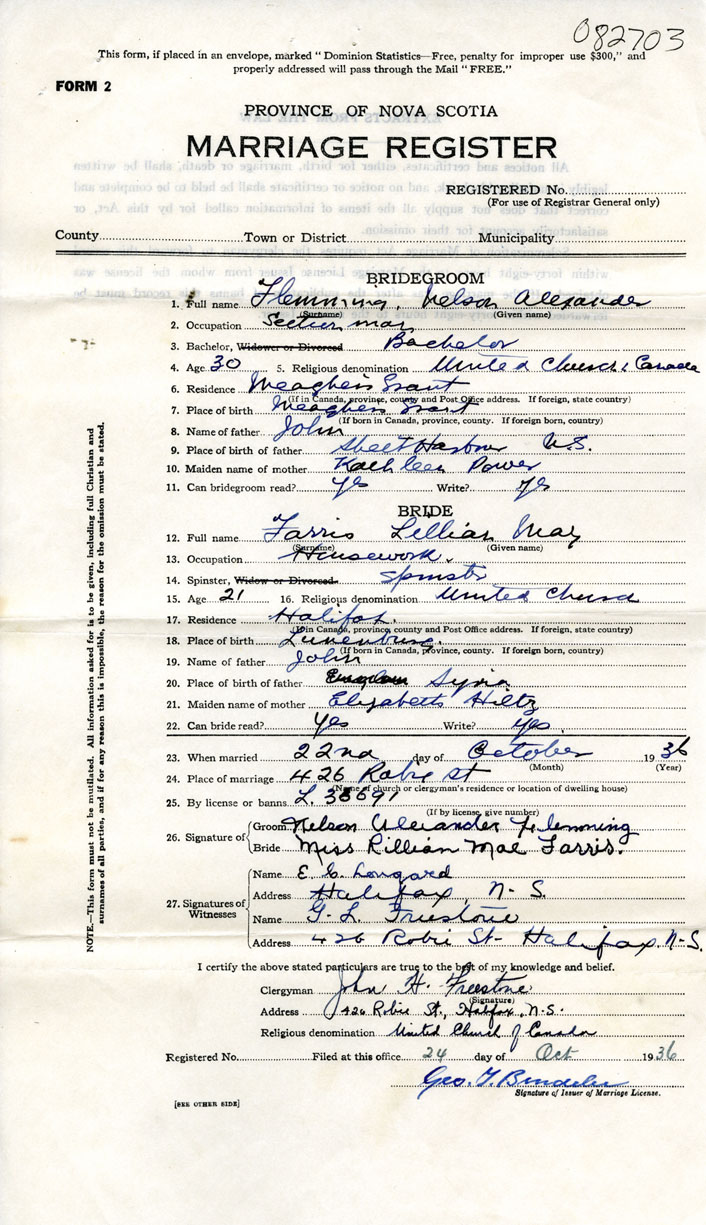 082703
This form, if placed in an envelope, marked " Dominion Statistics—Free, penalty for improper use $300," and
properly addressed will pass through the Mail " FREE."
FORM 2
PROVINCE OF NOVA SCOTIA
MARRIAGE REGISTER
REGISTERED No.
(For use of Registrar General only)
County Town or District Municipality
BRIDEGROOM
1. Full name Flemming, Nelson Alexander
(Surname) (Given name)
2. Occupation Section man
3. Bachelor, Widower or Divorced Bachelor
4. Age 30 5. Religious denomination United Church Canada
6. Residence Meaghers Grant
(If in Canada, province, county and Post Office address. If foreign, state country)
7. Place of birth Meaghers Grant
(If born in Canada, province, county. If foreign born, country)
8. Name of father John
9. Place of birth of father Sheet Harbour N.S.
10. Maiden name of mother Kathleen Power
11. Can bridegroom read? yes Write? yes
BRIDE
12. Full name Farris Lillian May
(Surname) (Given name)
13. Occupation Housework.
14. Spinster, Widow or Divorced Spinster
15. Age 21 16. Religious denomination United Church
17. Residence Halifax.
(If in Canada, province, county and Post Office address. If foreign, state country)
18. Place of birth Lunenburg.
(If born in Canada, province, county. If foreign born, country)
19. Name of father John
20. Place of birth of father Syria
21. Maiden name of mother Elizabeth Hiltz
22. Can bride read? Yes Write? Yes.
23. When married 22nd day of October 1936
(Month) (Year)
24. Place of marriage 426 Robie St
(Name of church or clergyman's residence or location of dwelling house)
25. By license or banns L.
(If by license, give number)
26. Signature of Groom Nelson Alexander Flemming
Bride Miss Lillian Mae Farris.
27. Signatures of Witnesses Name E. C. Longard
Address Halifax, N-S.
Name G. L. Freestone
Address 426 Robie St- Halifax, N-S.
I certify the above stated particulars are true to the best of my knowledge and belief.
Clergyman John H. Freestone
(Signature)
Address 426 Robie St., Halifax, N.S.
Religious denomination United Church of Canada
Registered No. Filed at this office 24 day of Oct 1936
Geo.
Signature of Issuer of Marriage License.
[SEE OTHER SIDE]
NOTE.—This form must not be mutilated. All information asked for is to be given, including full Christian and
surnames of all parties, and if for any reason this is impossible, the reason for the omission must be stated.